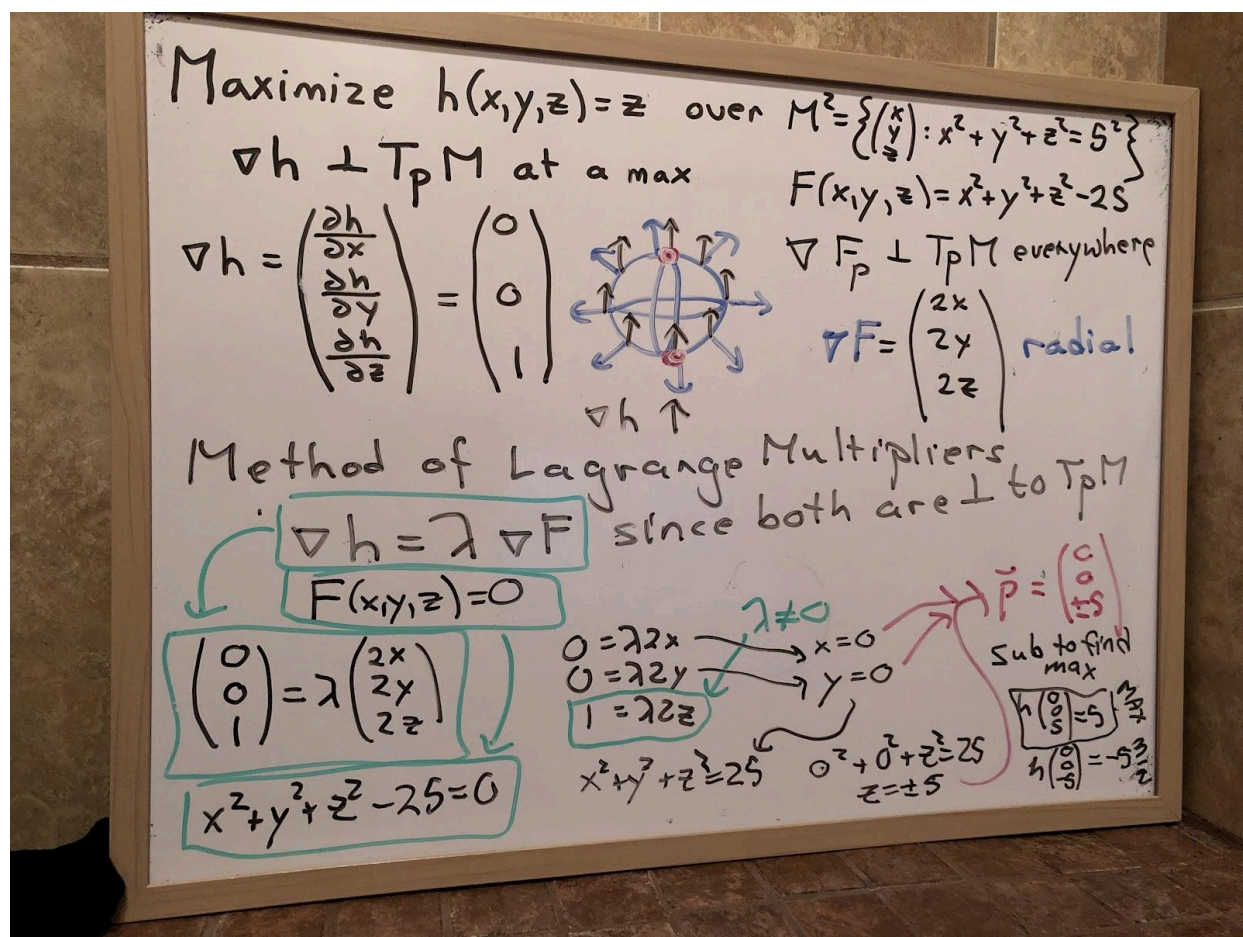 Maximize h(x,y,z)=z over M²={(x y z): x²+y²+z²=5²}
∇h ⊥ TₚM at a max
F(x,y,z)=x²+y²+z²-25
∇h = (∂h/∂x ∂h/∂y ∂h/∂z) = (0 0 1)
∇Fₚ ⊥ TₚM everywhere
∇F= (2x 2y 2z) radial
∇h ↑
Method of Lagrange Multipliers
∇h = λ∇F since both are ⊥ to TₚM
F(x,y,z)=0
(0 0 1) = λ(2x 2y 2z)
x²+y²+z²-25=0
λ≠0
0=λ2x → x=0
0=λ2y → y=0
1=λ2z
x²+y²+z²=25
0²+0²+z²=25
z=±5
p⃗ = (0 0 ±5)
sub to find
max
h(0 0 5)=5 max
h(0 0 -5)=-5 min